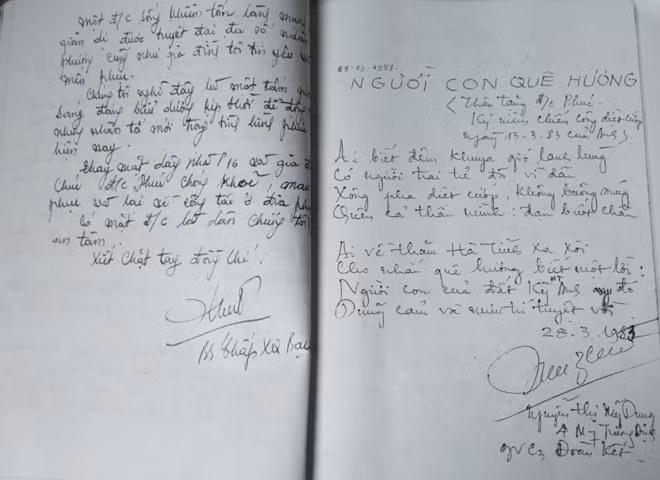 một đ/c sống khiêm tốn lặng
giản dị được tuyệt đại đa số nhân
phường cũng như gia đình tôi tin yêu
mến phục.
Chúng tôi nghĩ đây là một tấm
sáng đáng bầu dưỡng kịp thời để
những nhân tố mới trong tình hình
hiện nay.
Thay mặt dãy nhà P16 và gia
chúc đ/c Phúc chóng khoẻ,
phục và lại về công tác ở địa
có mặt đ/c là dân chúng tôi
an tâm.
Xiết chặt tay đồng chí.
BS
28-03-1983.
NGƯỜI CON QUÊ HƯƠNG
(Thân tặng đ/c Phúc.
Kỷ niệm chiến công diệt cướp
ngày 13.3.83 của Anh)
Ai biết đêm khuya gió lạnh lùng
Có người trai trẻ đã vì dân
Xông pha diệt cướp, không buông súng
Quên cả thân mình: đạn buốt chân
Ai về thăm Hà Tĩnh xa xôi
Cho nhắn quê hương biết một lời:
Người con của đất Kỳ Anh đó
Dũng cảm và mưu trí tuyệt vời
28.3.1983
Nguyễn thị Mỹ Dung
GVC3 Đoàn Kết